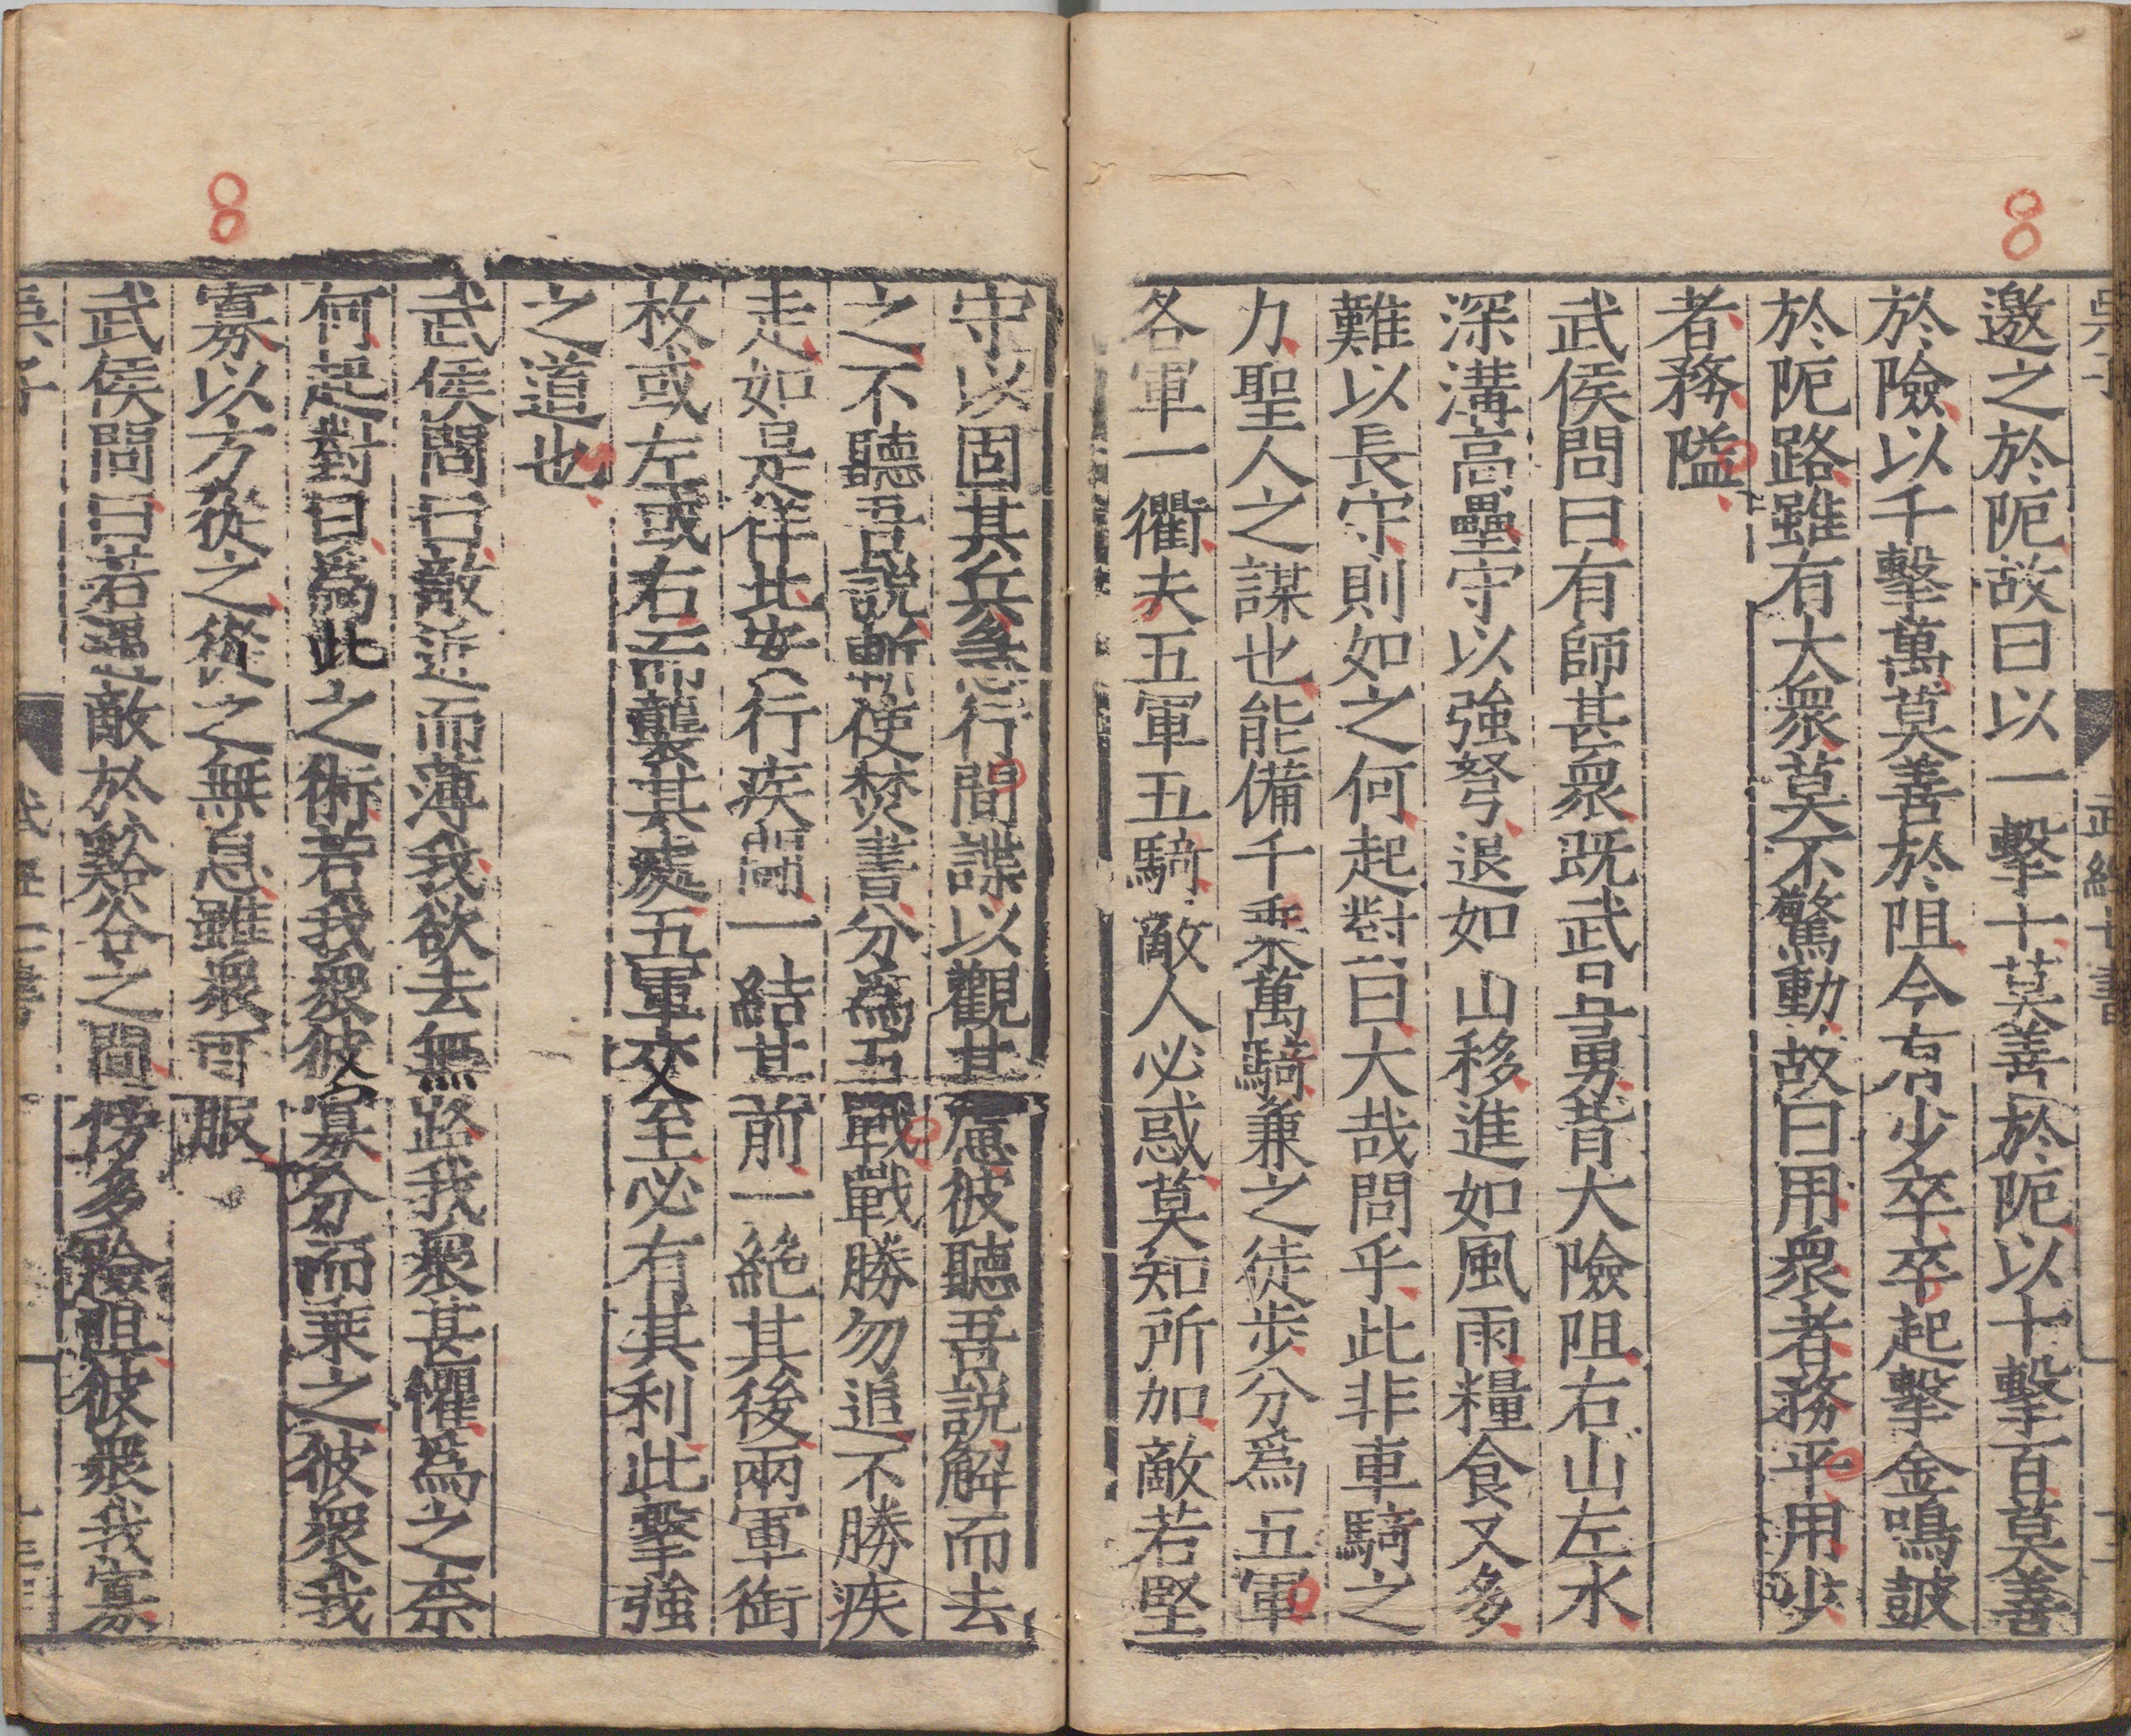 邀之於阨故曰以一擊十莫善於阨以十擊百莫善
於險以千擊萬莫善於阻今有少卒卒起擊金鳴鼓
於阨路雖有大衆莫不驚動故曰用衆者務平用少
者務隘
武侯問曰有師甚衆既武且勇背大險阻右山左水
深溝高壘守以強弩退如山移進如風雨糧食又多
難以長守則如之何起對曰大哉問乎此非車騎之
力聖人之謀也能備千乘萬騎兼之徒步分爲五軍
各軍一衢夫五軍五騎敵人必惑莫知所加敵若堅
守以固其兵急行間諜以觀其慮彼聽吾説解而去
之不聽吾説斬使焚書分爲五戰戰勝勿追不勝疾
走如是佯北安行疾鬪一結其前一絶其後兩軍銜
枚或左或右而襲其處五軍交至必有其利此擊強
之道也
武侯問曰敵近而薄我欲去無路我衆甚懼爲之柰
何起對曰爲此之術若我衆彼寡分而乘之彼衆我
寡以方從之從之無息雖衆可服
武侯問曰若遇敵於谿谷之間傍多險阻彼衆我寡